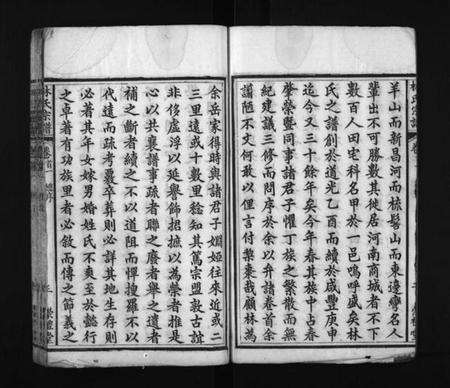 羊山而新昌河而梳髻山而東邊灣名人
輩出不可勝數其徙居河南商城者不下
數百人田宅科名甲於一邑嗚呼盛矣林
氏之譜創於道光乙酉而續於咸豐庚申
迄今又三十餘年矣今年春其族中占春
肇榮暨同事諸君子懼丁族之繁散而無
紀建議三修而問序於余以弁諸卷首余
謭陋不文何敢以俚言付棃棗哉顧林為
余岳家得時與諸君子嫺婭往來近或二
三里遠或十數里稔知其篤宗盟敦古誼
非侈虛浮以延譽飾招摭以為榮者推是
心以共襄譜事疏者聯之廢者舉之遺者
補之斷者續之不以道阻而憚搜羅不以
代遠而疏考覈卒葬則必詳其地生存則
必著其年女嫁男婚姓氏不爽至於懿行
之卓著有功族里者必敘而傳之節義之
林氏宗譜 卷首